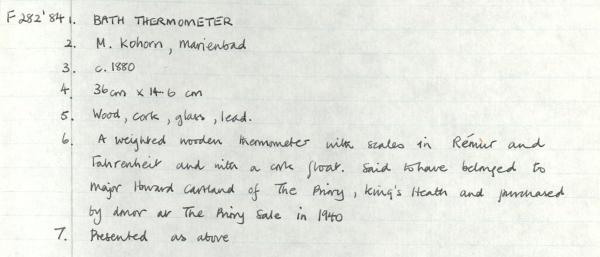 F282'84 1. BATH THERMOMETER
2. M. Kohorn, Marienbad
3. c. 1880
4. 36cm x 14.6 cm
5. Wood, cork, glass, lead.
6. A weighted wooden thermometer with scales in Rémur and
Fahrenheit and with a cork float. Said to have belonged to
Major Howard Cartland of The Priory, King's Heath and purchased
by donor at The Priory Sale in 1940
7. Presented as above